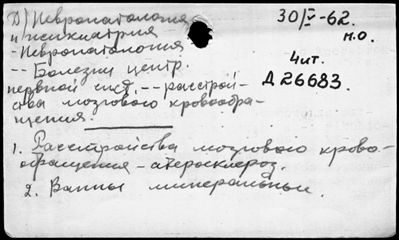 Д) Невропатология
и психиатрия
- Невропатология
-- Болезни центр.
нервной сист. -- расстрой-
ства мозгового кровообра-
щения.
30/V-62.
м.о.
4 чит.
Д 26683.
1. Расстройства мозгового крово-
обращения - атеросклероз.
2. Ванны минеральные.